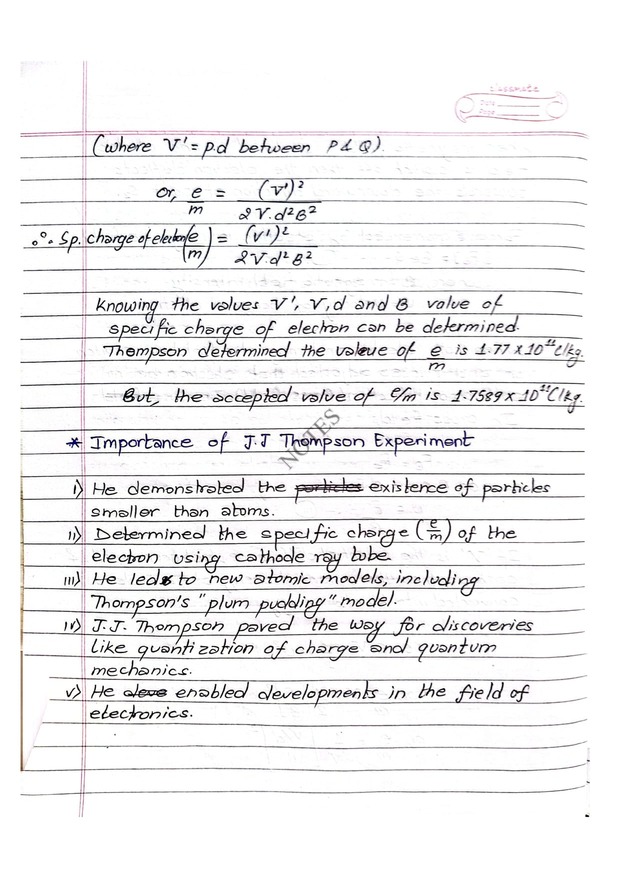 classmate
Date
Page
(where V' = p.d between P & Q).
or, e/m = (V')² / 2V.d²B²
∴ Sp. charge of electron (e/m) = (V')² / 2V.d²B²
Knowing the values V', V, d and B value of
specific charge of electron can be determined.
Thompson determined the value of e/m is 1.77 x 10¹¹ C/kg.
But, the accepted value of e/m is 1.7589 x 10¹¹ C/kg.
NOTES
* Importance of J.J Thompson Experiment
i) He demonstrated the particles existence of particles
smaller than atoms.
ii) Determined the specific charge (e/m) of the
electron using cathode ray tube.
iii) He led to new atomic models, including
Thompson's "plum pudding" model.
iv) J.J. Thompson paved the way for discoveries
like quantization of charge and quantum
mechanics.
v) He enabled developments in the field of
electronics.